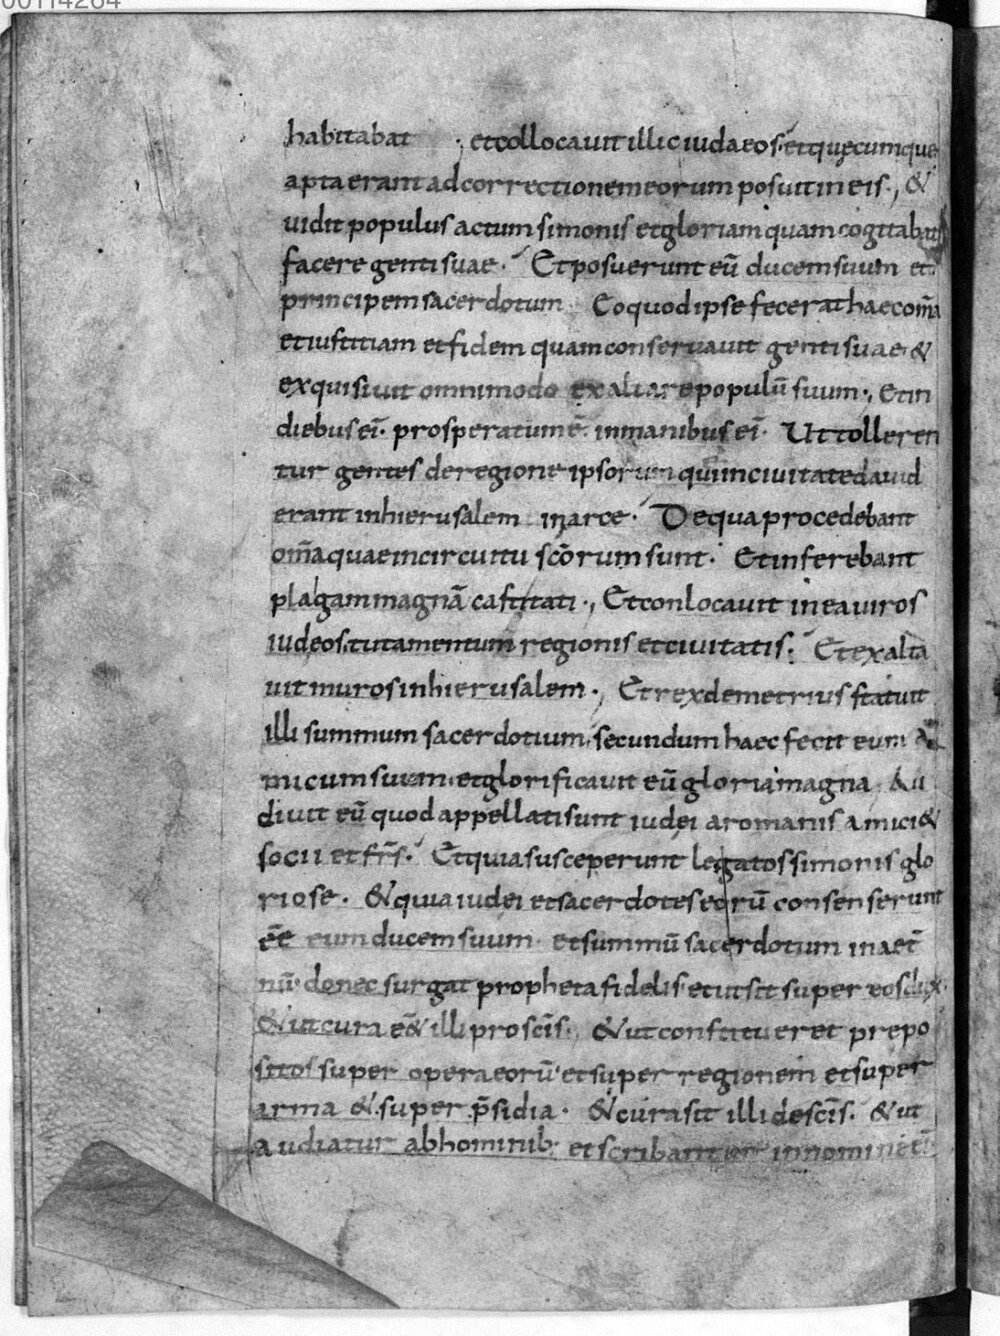 00114264
habitabat · et collocauit illic iudaeos · et quęcumque
apta erant ad correctionem eorum posuit in eis ·, &
uidit populus actum simonis et gloriam quam cogitabat
facere genti suae · Et posuerunt eū ducem suum et
principem sacerdotum · Eo quod ipse fecerat haec om̄a
et iustitiam et fidem quam conseruauit genti suae · &
exquisiuit omnimodo exaltare populū suum ·, Et in
diebus eī · prosperatum ē · in manibus eī · Ut tolleren
tur gentes de regione ipsorum qui in ciuitate dauid
erant in hierusalem in arce · De qua procedebant
om̄a quae in circuitu sc̄orum sunt · Et inferebant
plagam magnā castitati ·, Et conlocauit in ea uiros
iudeos · tutamentum regionis et ciuitatis · Et exalta
uit muros in hierusalem ·, Et rex demetrius statuit
illi summum sacerdotium · secundum haec fecit eum A
micum suum · et glorificauit eū gloria magna · Au
diuit eū quod appellati sunt iudei a romanis amici &
socii et fr̄s · Et quia susceperunt legatos simonis glo
riose · & quia iudei et sacerdotes eorū consenserunt
ēē eum ducem suum · et summū sacerdotum in aet̄
nū · donec surgat propheta fidelis · et ut sit super eos dux ·
& ut cura ēē& illi pro sc̄is · & ut constitueret prepo
sitos super opera eorū · et super regionem et super
arma & super p̄sidia · & cura sit illi de sc̄is · & ut
audiatur ab hominib; et scribantur in nomine eī